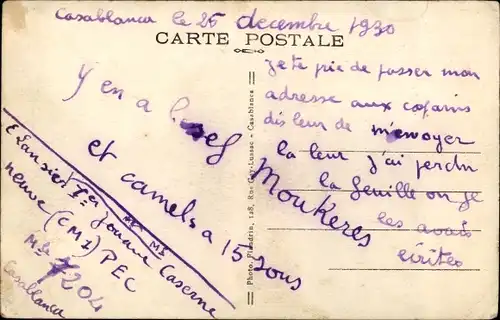 Casablanca le 25 decembre 1930
CARTE POSTALE
Y en a
et camels a 15 sous
Moukeres
E Lansier
1er Zouave Caserne
neuve (CM1) PEC
Mle 7204
Casablanca
Photo. Flandrin, 128, Rue Gay-Lussac - Casablanca
je te prie de passer mon
adresse aux copains
dis leur de m'envoyer
la leur j'ai perdu
la feuille ou je
les avais
écrites